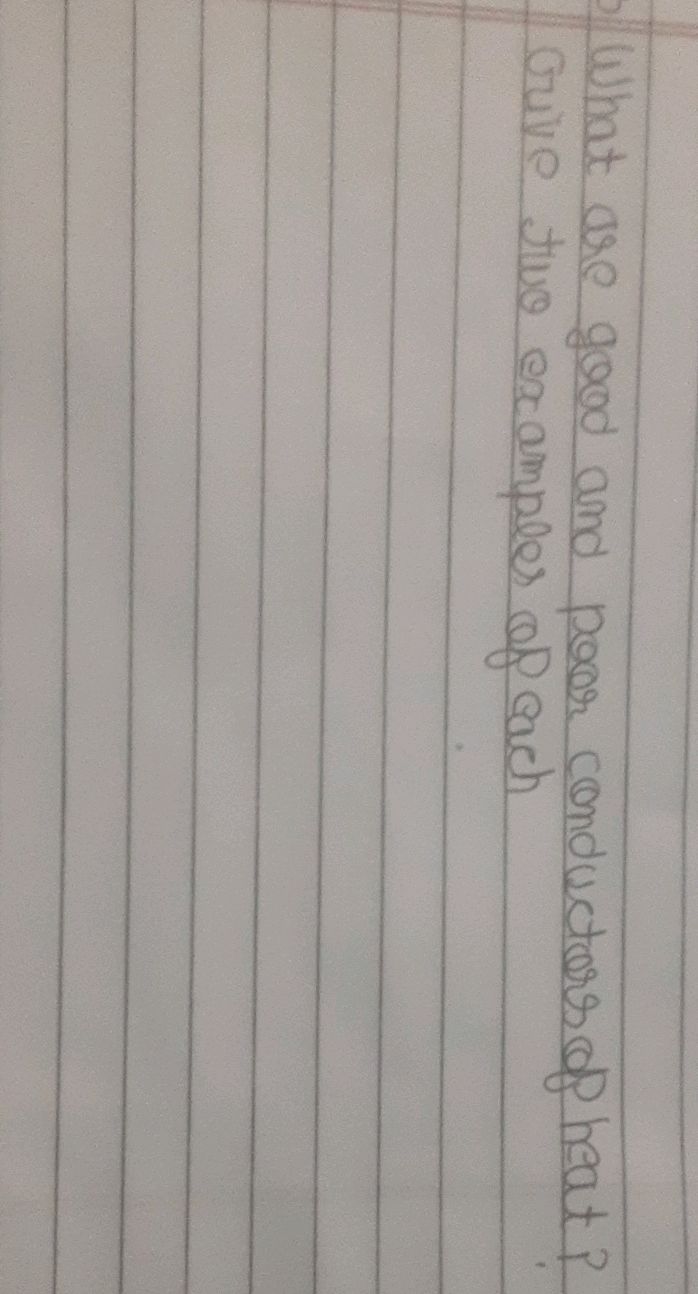 What are good and poor conductors of heat?
Give two examples of each